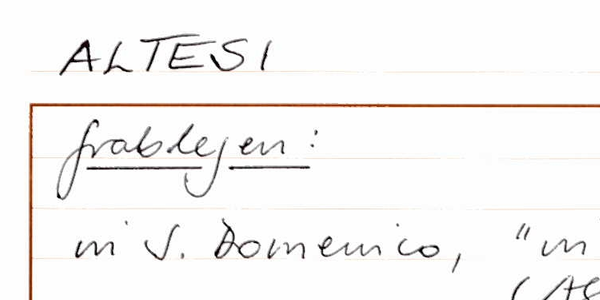 ALTESI
Grablegen:
in S. Domenico, "in
(As